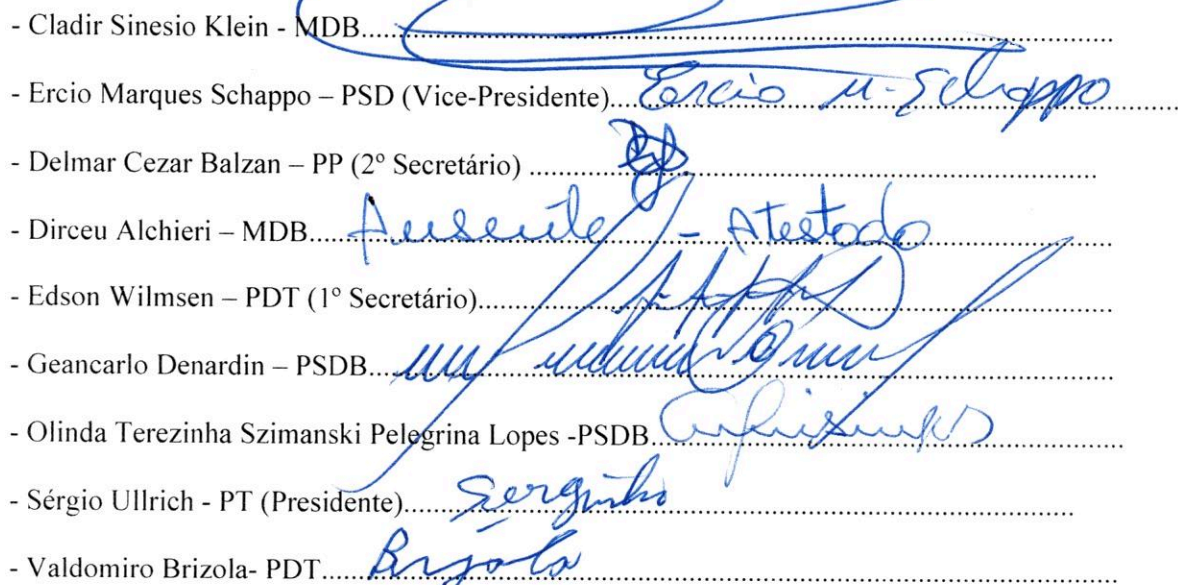 - Cladir Sinesio Klein - MDB....
- Ercio Marques Schappo – PSD (Vice-Presidente)... Ercio M. Schappo
- Delmar Cezar Balzan – PP (2º Secretário) ....
- Dirceu Alchieri – MDB.... Ausente - Atestado
- Edson Wilmsen – PDT (1º Secretário)....
- Geancarlo Denardin – PSDB....
- Olinda Terezinha Szimanski Pelegrina Lopes -PSDB.
- Sérgio Ullrich - PT (Presidente).... Serginho
- Valdomiro Brizola- PDT.... Brizola